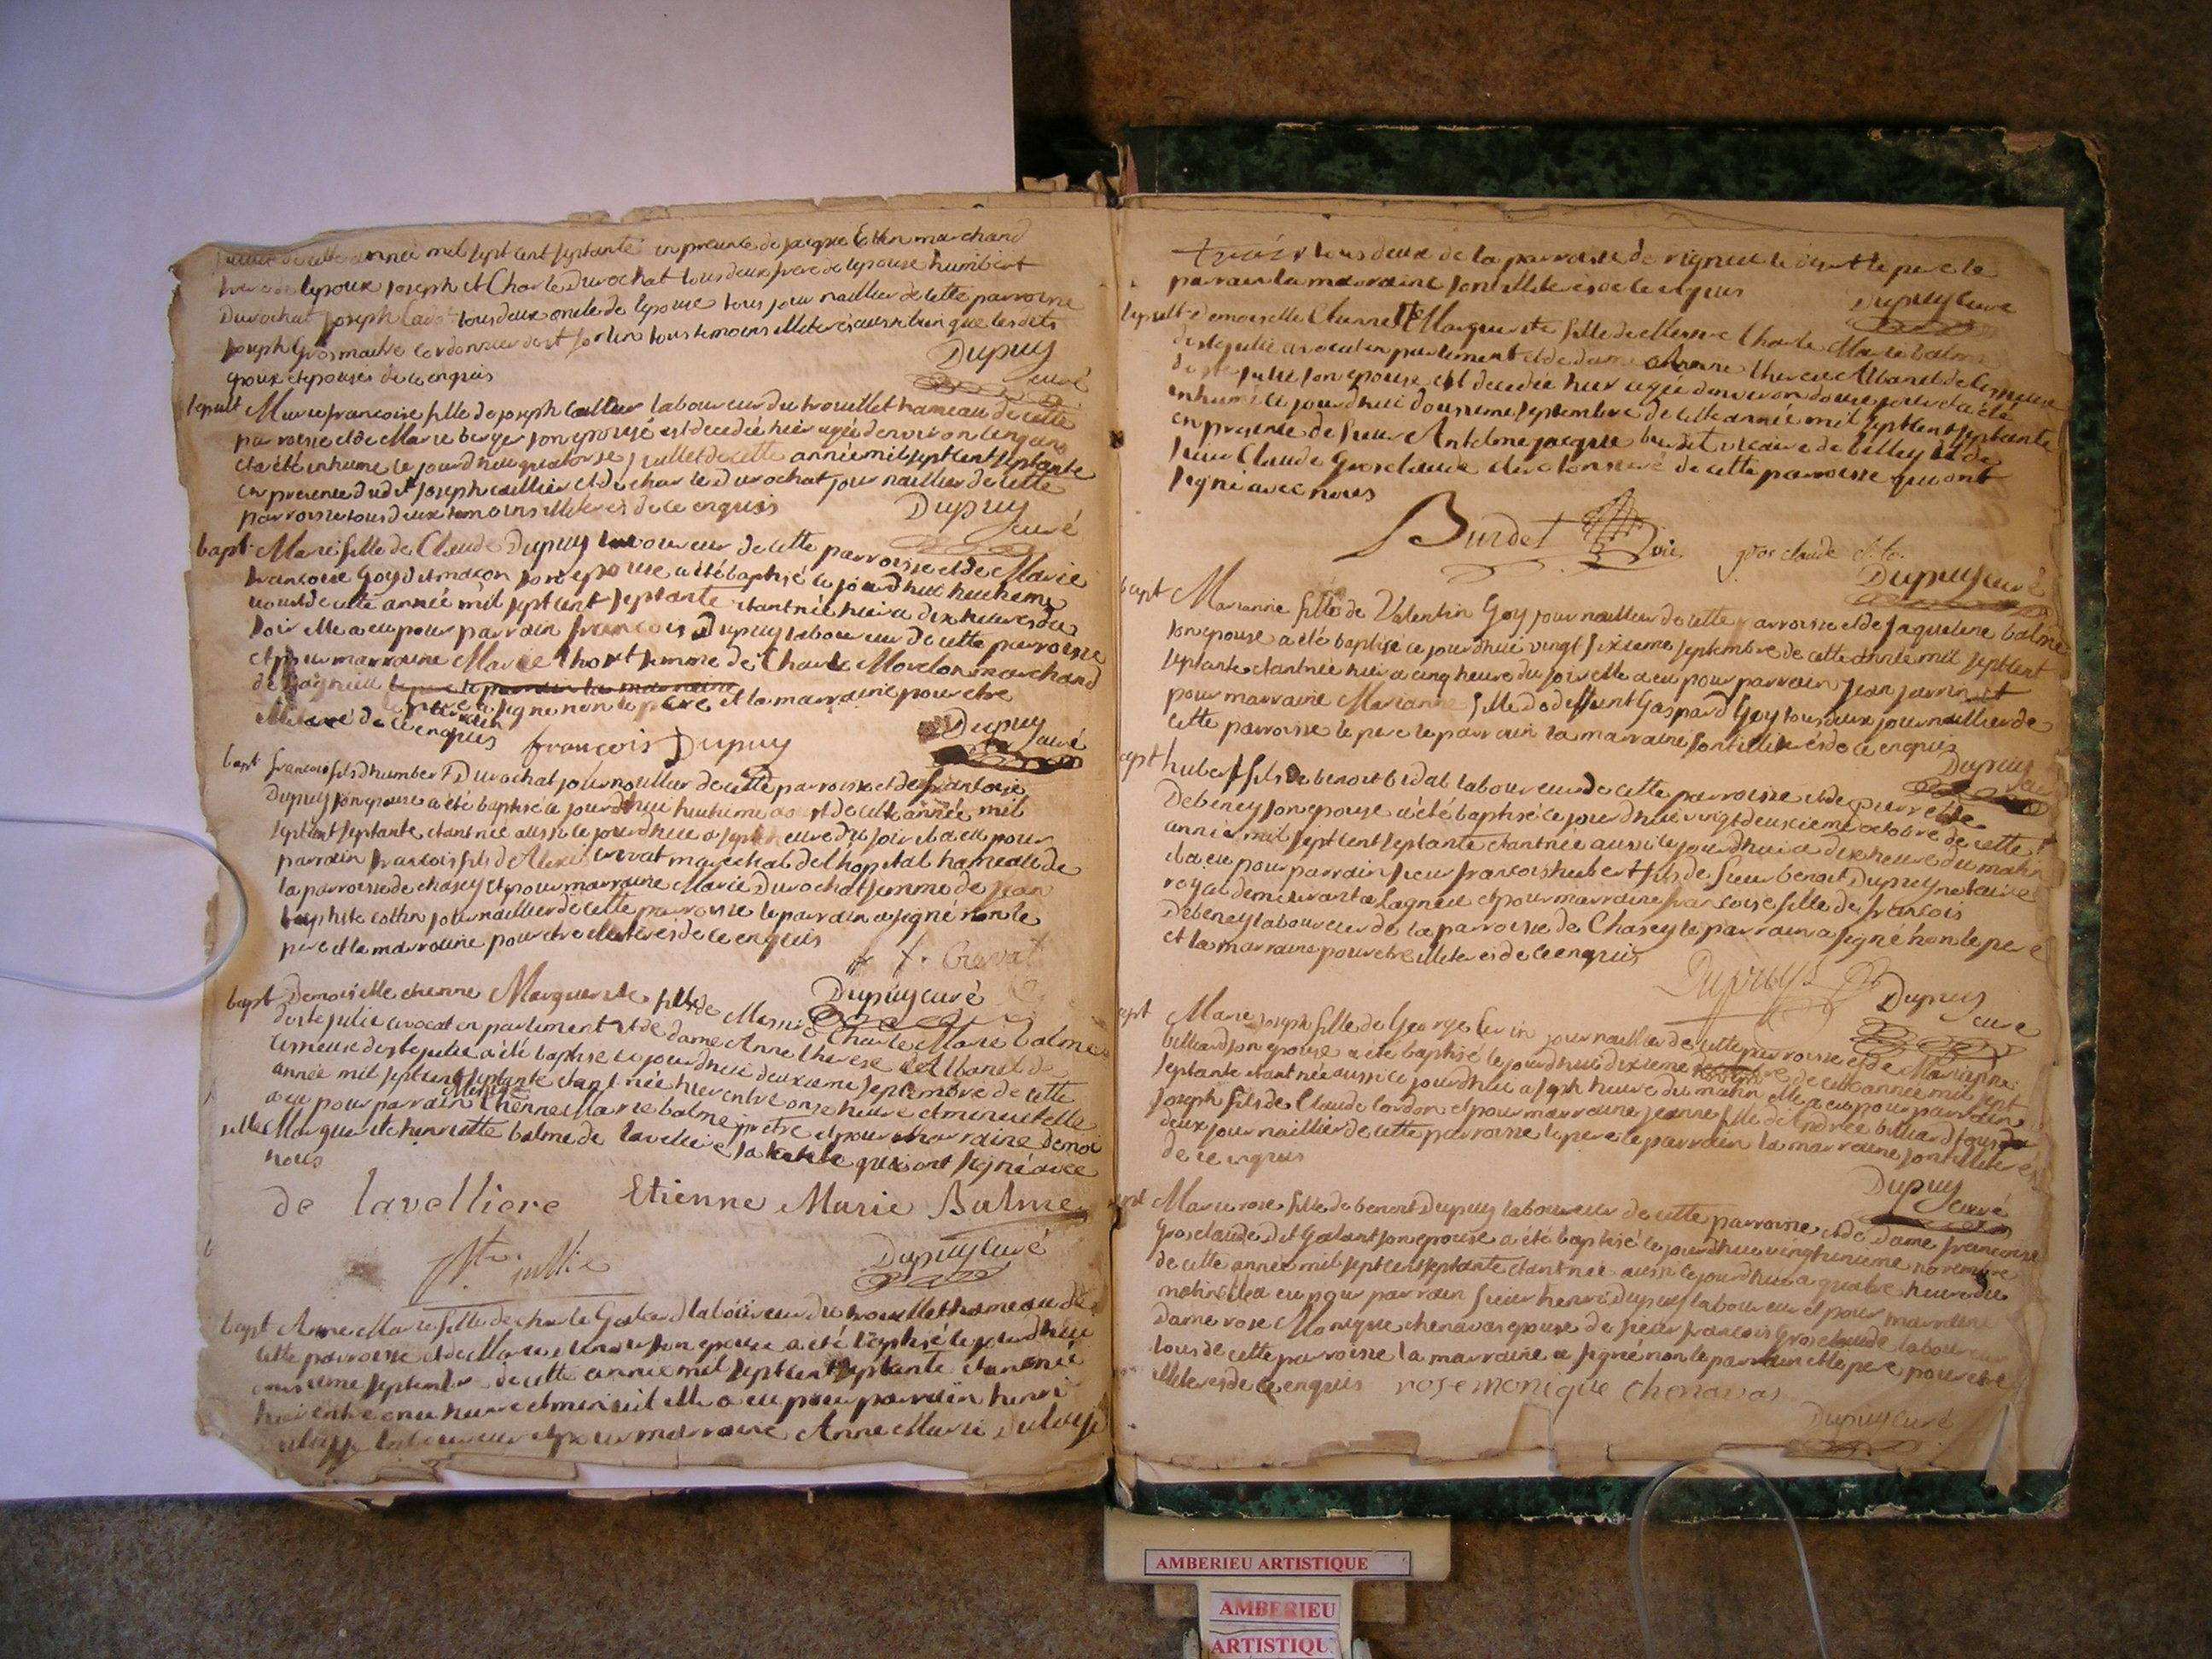 de cette année mil sept cent septante en presence de jacque marchand
lepoux joseph et Charle Durochat tous deux frere de lepouse humbert
Durochat joseph tous deux oncle de lepouse tous journaillier de cette parroisse
joseph Gros maitre cordonnier tous temoins illiterés aussi bien que lesdits
epoux et epouses de ce enquis
Dupuy
curé
sepult Marie francoise fille de joseph caillier laboureur du trouillet hameau de cette
parroisse et de Marie berger son epouse est decedée hier agée denviron cinq ans
et a été inhumé ce jourdhui quatorse juillet de cette année mil sept cent septante
en presence dudit joseph caillier et de charle Durochat journaillier de cette
parroisse tous deux temoins illiterés de ce enquis
Dupuy
curé
bapt Marie fille de Claude Dupuy laboureur de cette parroisse et de Marie
francoise Goy dit macon son epouse a été baptisé ce jourdhui huitieme
aoust de cette année mil sept cent septante etant née hier a dix heures du
soir elle a eu pour parrain francois Dupuy laboureur de cette parroisse
et pour marraine Marie femme de Charle marchand
de Lagnieu le parrain a signe non le père et la marraine pour etre
illiteré de ce enquis
françois Dupuy
Dupuy
curé
bapt francois fils dhumbert Durochat journaillier de cette parroisse et de francoise
Dupuy son epouse a été baptisé ce jourdhui huitieme aoust de cette année mil
sept cent septante etant né aussi ce jourdhui a sept heure du soir il a eu pour
parrain francois fils dAlexis crevat marechal de lhopital hameau de
la parroisse de chasey et pour marraine Marie Durochat femme de jean
baptiste cottin journaillier de cette parroisse le parrain a signé non le
pere et la marraine pour etre illiterés de ce enquis
f. Crevat
Dupuy curé
bapt Demoiselle etienne Marguerite fille de Messire Charle Marie balme
de ste julie avocat en parlement et de dame Anne therese Albanel de
cesmeuse de ste julie a été baptisé ce jourdhui deuxieme septembre de cette
année mil sept cent septante etant née hier entre onse heure et minuit elle
a eu pour parrain Messire Ethienne Marie balme prêtre et pour marraine demoi
selle Marguerite henriette balme de lavelliere sa tante qui ont signé avec
nous
de lavelliere Etienne Marie Balme
Ste jullie
Dupuy curé
bapt Anne Marie fille de charle laboureur du trouillet hameau de
cette parroisse et de Marie son epouse a été baptisé ce jourdhui
onsieme septembre de cette année mil sept cent septante etant née
hier entre onse heure et minuit elle a eu pour parrain henri
laboureur et pour marraine Anne Marie
tous deux de la parroisse de rigneu le desert le pere le
parrain la marraine sont illiterés de ce enquis
Dupuy curé
sepult Demoiselle Etiennette Marguerite fille de Messire Charle Marie balme
de ste julie avocat en parlement et de dame Anne therese Albanel de Cesmeuse
de ste julie son epouse est decedée hier agée denviron douse jours et a été
inhumé ce jourdhui dousieme septembre de cette année mil sept cent septante
en presence de sieur Antelme jacque burdet vicaire de belley et de
sieur Claude Grosclaude clerc tonsuré de cette parroisse qui ont
signé avec nous
Burdet vic. grosclaude cl. to.
Dupuy curé
bapt Marianne fille de Valentin Goy journaillier de cette parroisse et de jaqueline balme
son epouse a été baptisé ce jourdhui vingt sixieme septembre de cette année mil sept cent
septante etant née hier a cinq heure du soir elle a eu pour parrain jean et
pour marraine Marianne fille de deffunt Gaspard Goy tous deux journaillier de
cette parroisse le pere le parrain la marraine sont illiterés de ce enquis
Dupuy
curé
bapt hubert fils de benoit bidal laboureur de cette parroisse et de pierrette
Debeney son epouse a été baptisé ce jourdhui vingt deuxieme octobre de cette
année mil sept cent septante etant né aussi ce jourdhui a dix heure du matin
il a eu pour parrain sieur francois hubert fils de sieur benoit Dupuy notaire
royal demeurant a Lagnieu et pour marraine francoise fille de francois
Debeney laboureur de la parroisse de Chasey le parrain a signé non le pere
et la marraine pour etre illiterés de ce enquis
Dupuys
Dupuy
curé
bapt Marie joseph fille de George journaillier de cette parroisse et de Marianne
billiard son epouse a été baptisé ce jourdhui dixieme de cette année mil sept cent
septante etant née aussi ce jourdhui a sept heure du matin elle a eu pour parrain
joseph fils de Claude cordon et pour marraine jeanne fille de billiard tous
deux journaillier de cette parroisse le pere le parrain la marraine sont illiterés
de ce enquis
Dupuy
curé
bapt Marie rose fille de benoit Dupuy laboureur de cette parroisse et de Dame francoise
Grosclaude dit Galant son epouse a été baptisé ce jourdhui novembre
de cette année mil sept cent septante etant née aussi ce jourdhui a quatre heure du
matin elle a eu pour parrain sieur henri Dupuy laboureur et pour marraine
Dame rose Monique chenavas epouse de sieur francois Grosclaude laboureur
tous de cette parroisse la marraine a signé non le parrain et le pere pour etre
illiterés de ce enquis rose monique chenavas
Dupuy curé
AMBERIEU ARTISTIQUE
AMBERIEU
ARTISTIQU